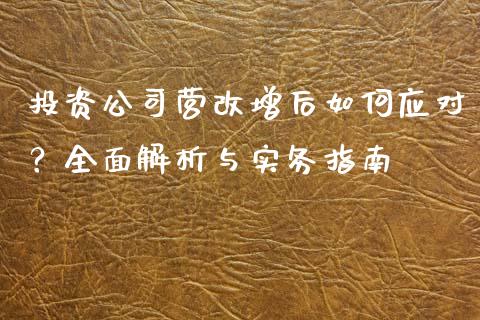 投资公司营改增后如何应对
？全面解析与实务指南